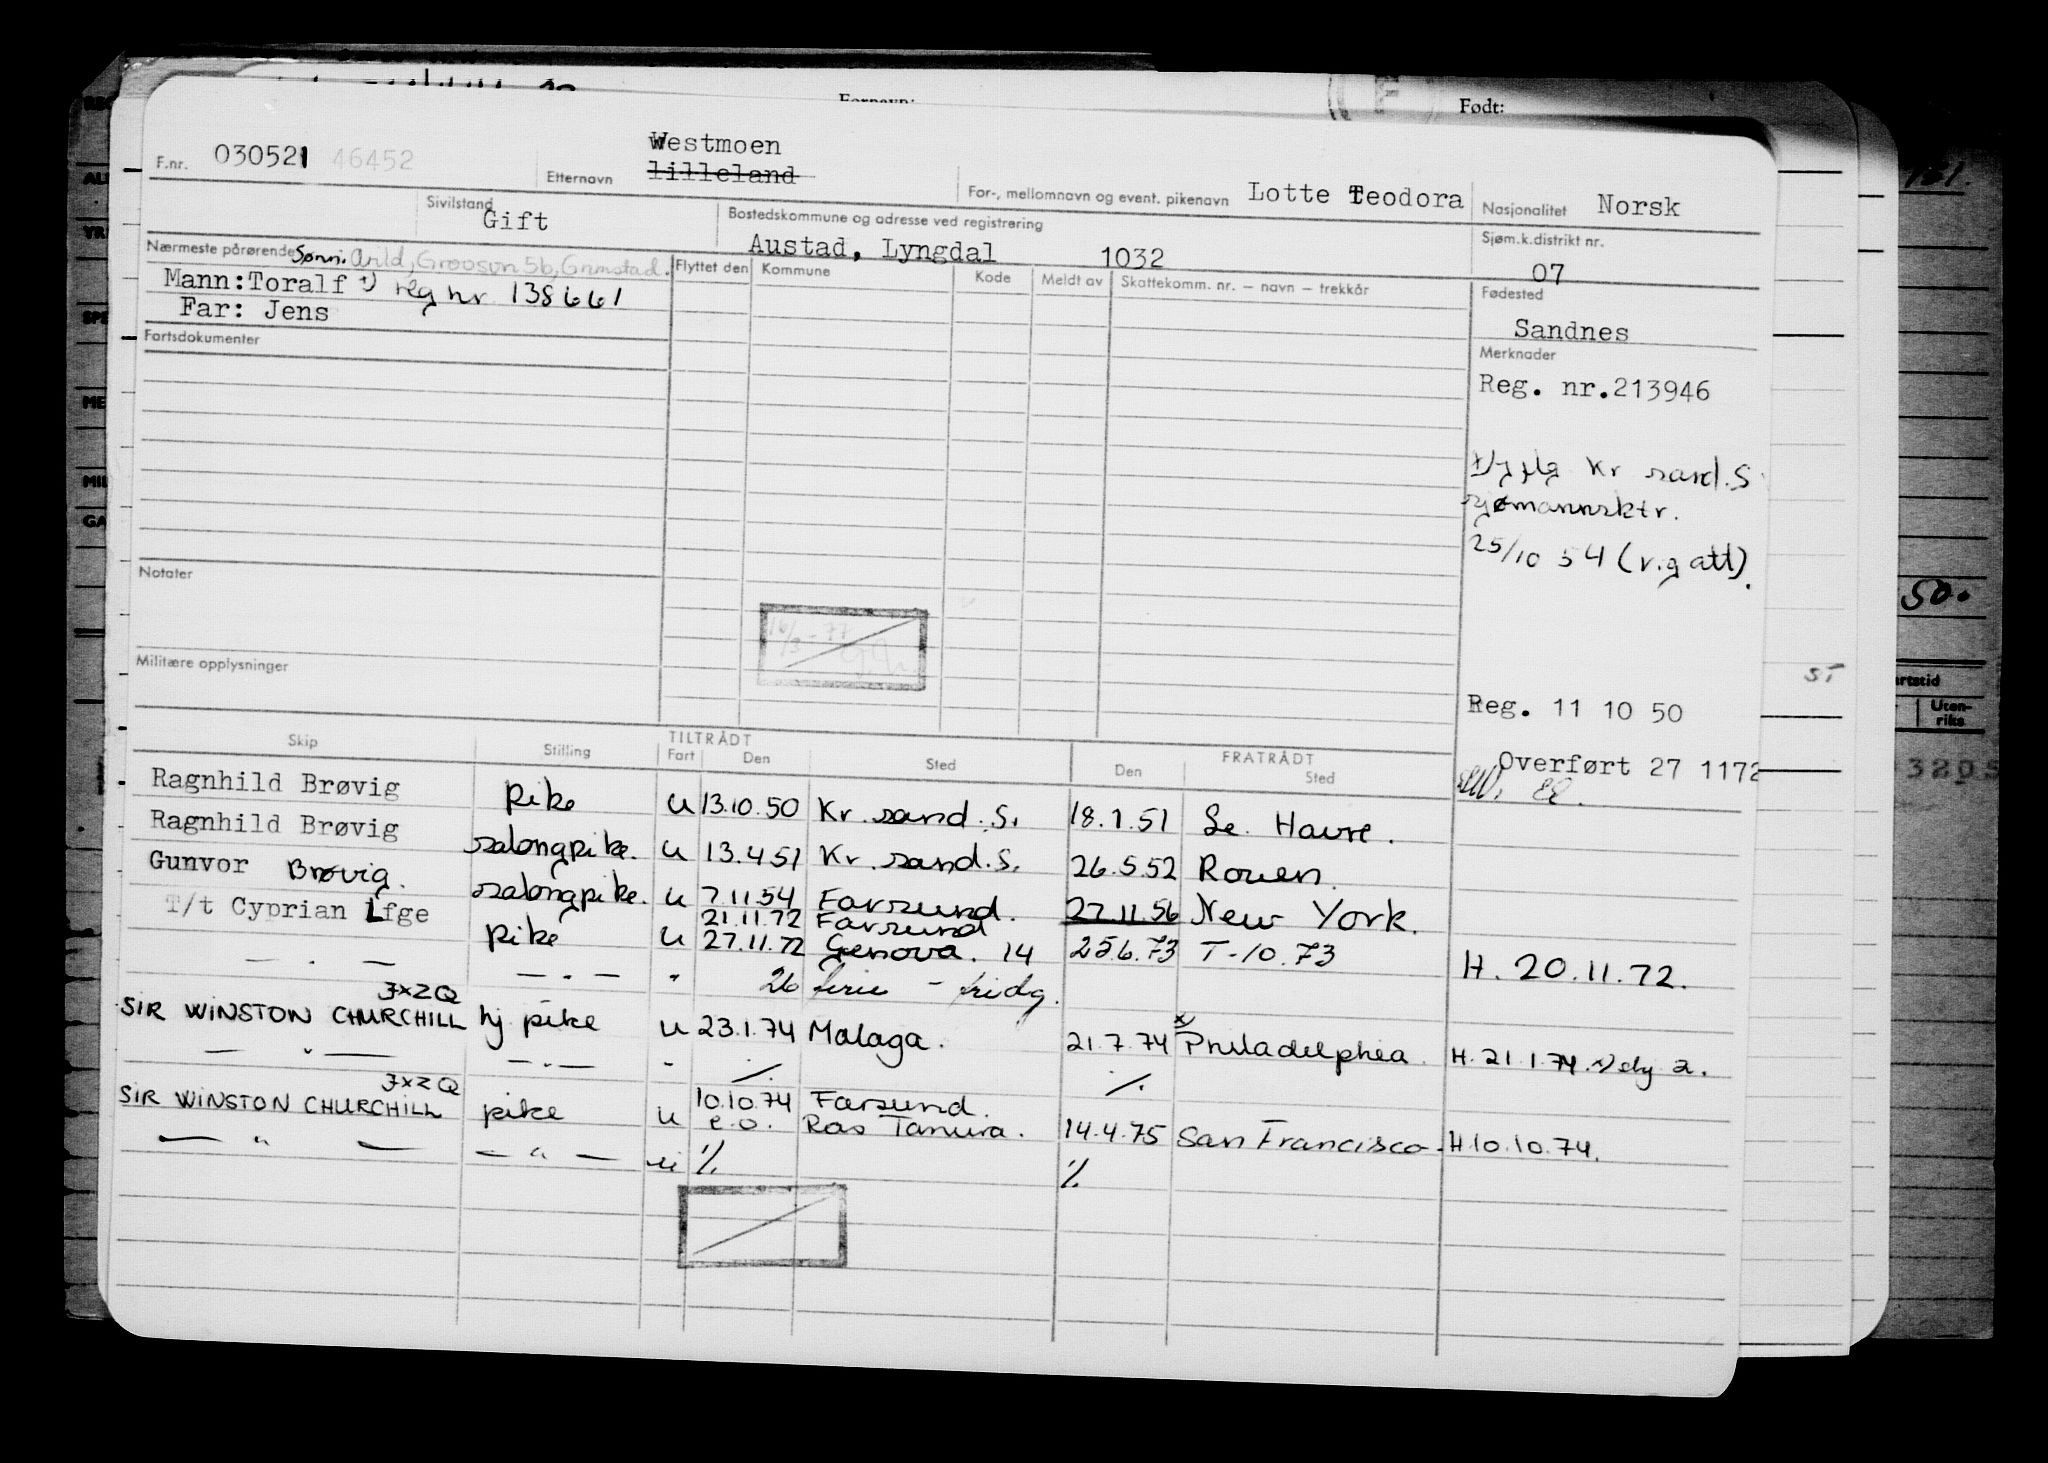 Fornavn: Født:
F.nr. 030521 46452 Etternavn Westmoen
lilleland
For-, mellomnavn og event. pikenavn Lotte Teodora Nasjonalitet Norsk
Sivilstand Gift
Bostedskommune og adresse ved registrering
Austad, Lyngdal 1032
Sjøm.k.distrikt nr.
07
Nærmeste pårørende Sønn: Arild, Groosvn 5b, Grimstad.
Mann:Toralf x) reg nr 138661
Far: Jens
Flyttet den Kommune Kode Meldt av Skattekomm. nr. – navn – trekkår
Fødested
Sandnes
Fartsdokumenter
Merknader
Reg. nr.213946
Kr sand.S
sjømannsktr.
25/10 54 (r.g att).
Notater
16/3-77
Militære opplysninger
Reg. 11 10 50
Overført 27 1172
Skip Stilling TILTRÅDT FRATRÅDT
Fart Den Sted Den Sted
Ragnhild Brøvig pike u 13.10.50 Kr.sand.S. 18.1.51 Le Havre.
Ragnhild Brøvig salongpike. u 13.4.51 Kr.sand.S. 26.5.52 Rouen.
Gunvor Brøvig. salongpike. u 7.11.54 Farsund. 27.11.56 New York.
T/t Cyprian Lfge pike u 21.11.72 Farsund
27.11.72 Genova. 14 25.6.73 T-10.73 H. 20.11.72.
— . — — . — " 26 ferie - fridg.
JXZQ
SIR WINSTON CHURCHILL hj pike u 23.1.74 Malaga. 21.7.74 x) Philadelphia. H.21.1.74. x) dy 2.
— " — — . — - ./. ./.
JXZQ
SIR WINSTON CHURCHILL pike u 10.10.74 Farsund.
e.o. Ras Tanura. 14.4.75 San Francisco. H.10.10.74.
— " — — " — u ./. ./.